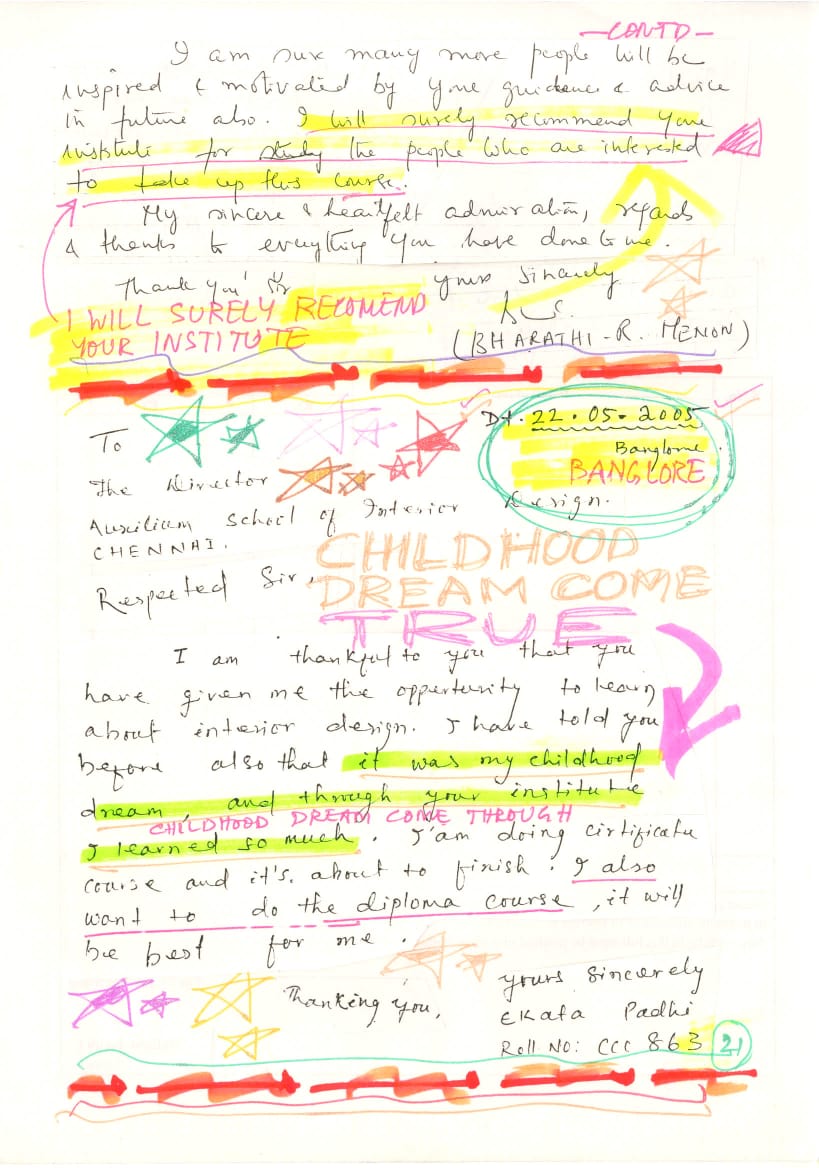 -CONTD-
I am sure many more people will be
inspired & motivated by your guidance & advice
in future also. I will surely recommend your
institute for study the people who are interested
to take up this course.
My sincere & heartfelt admiration, regards
& thanks to everything you have done to me.
Thank you Sir yours Sincerely
I WILL SURELY RECOMEND
YOUR INSTITUTE
(BHARATHI-R. MENON)
Dt. 22.05.2005
Banglore
BANGLORE
To
The Director
Auxilium School of Interior Design.
CHENNAI.
Respected Sir,
CHILDHOOD
DREAM COME
TRUE
I am thankful to you that you
have given me the opportunity to learn
about interior design. I have told you
before also that it was my childhood
dream, and through your institute
CHILDHOOD DREAM COME THROUGH
I learned so much. I am doing cirtificate
course and it's about to finish. I also
want to do the diploma course, it will
be best for me.
Thanking you,
yours Sincerely
Ekata Padhi
Roll No: CCC 863
21